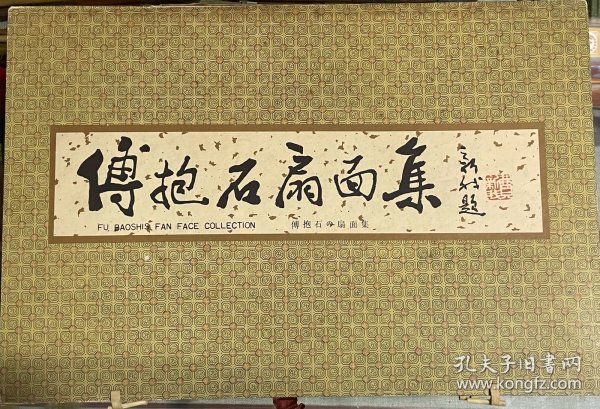 傅抱石扇面集
FU BAOSHIS FAN FACE COLLECTION 傅抱石の扇面集
孔夫子旧書网
www.kongfz.com